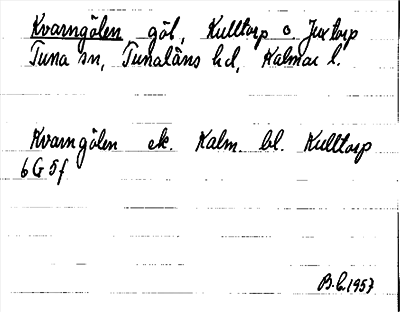 Kvarngölen göl, Kulltorp o Juxtorp
Tuna sn, Tunaläns hd, Kalmar l.
Kvarngölen ek. Kalm. bl. Kulltorp
6 G 5f
1957